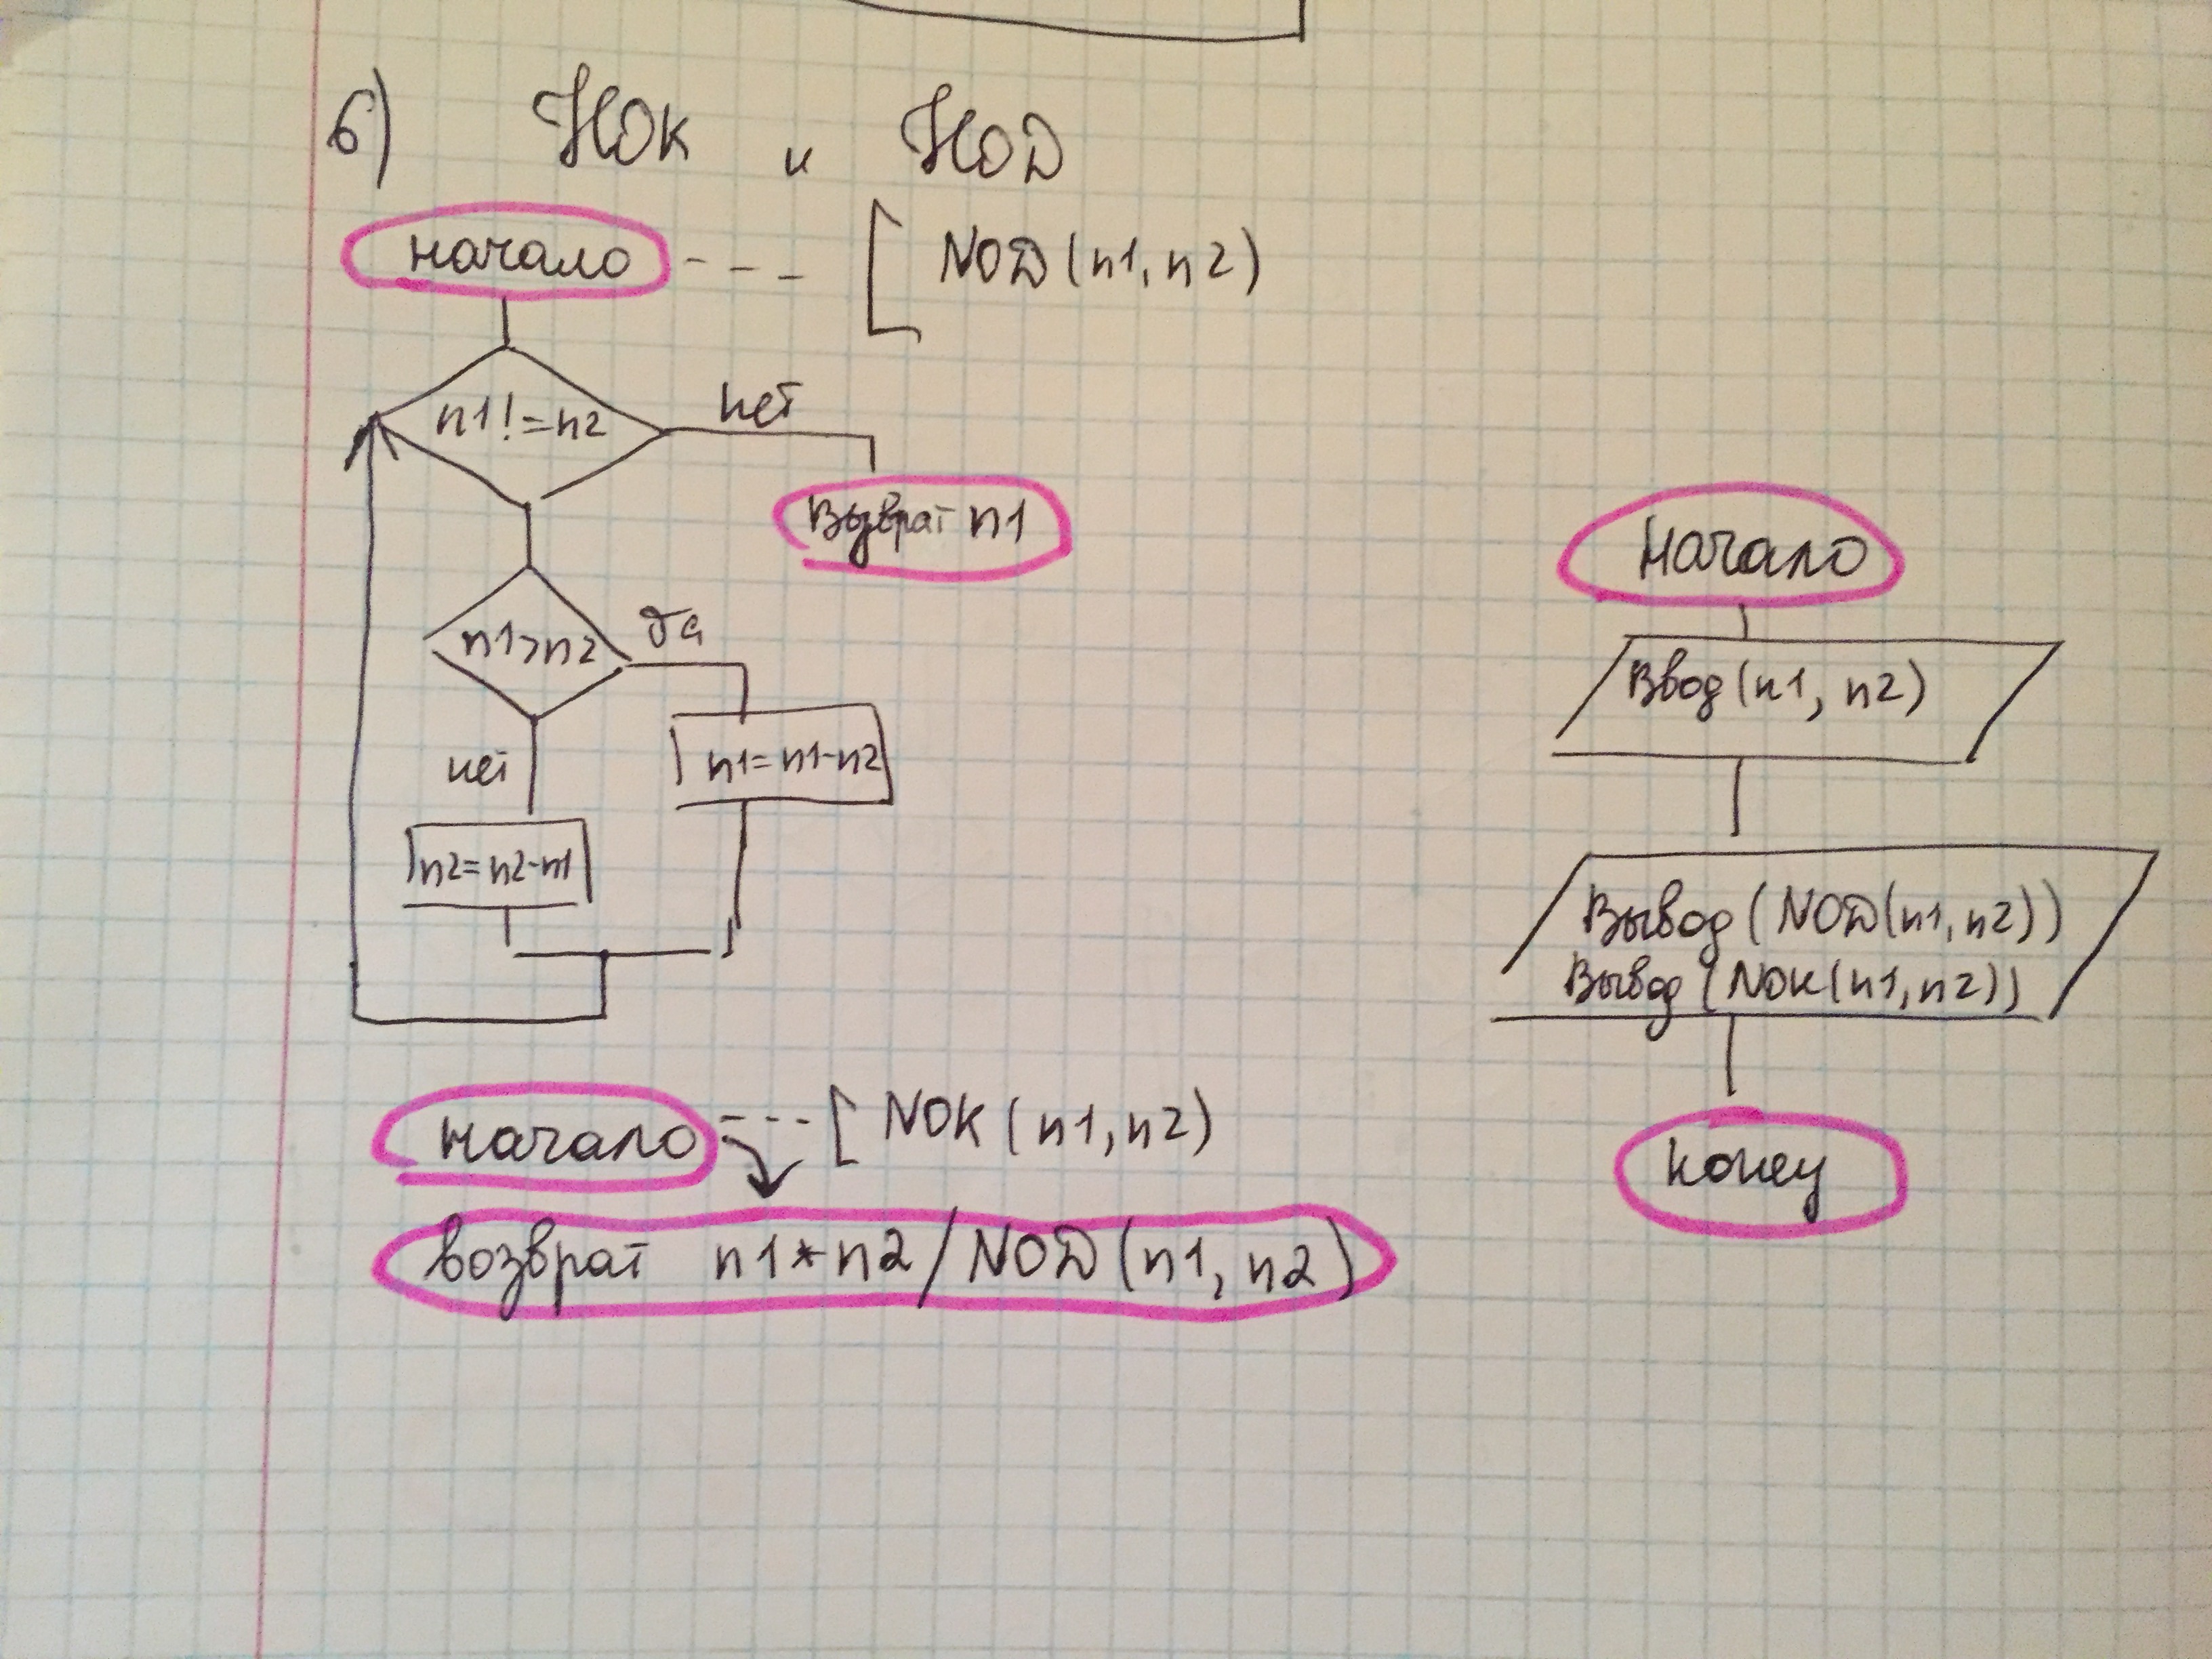 6) НОК и НОД
начало
NOD (n1, n2)
n1 != n2
нет
Возврат n1
n1 > n2
да
нет
n1 = n1-n2
n2 = n2-n1
начало
NOK (n1, n2)
возврат n1 * n2 / NOD (n1, n2)
Начало
Ввод (n1, n2)
Вывод (NOD(n1, n2))
Вывод (NOK(n1, n2))
конец